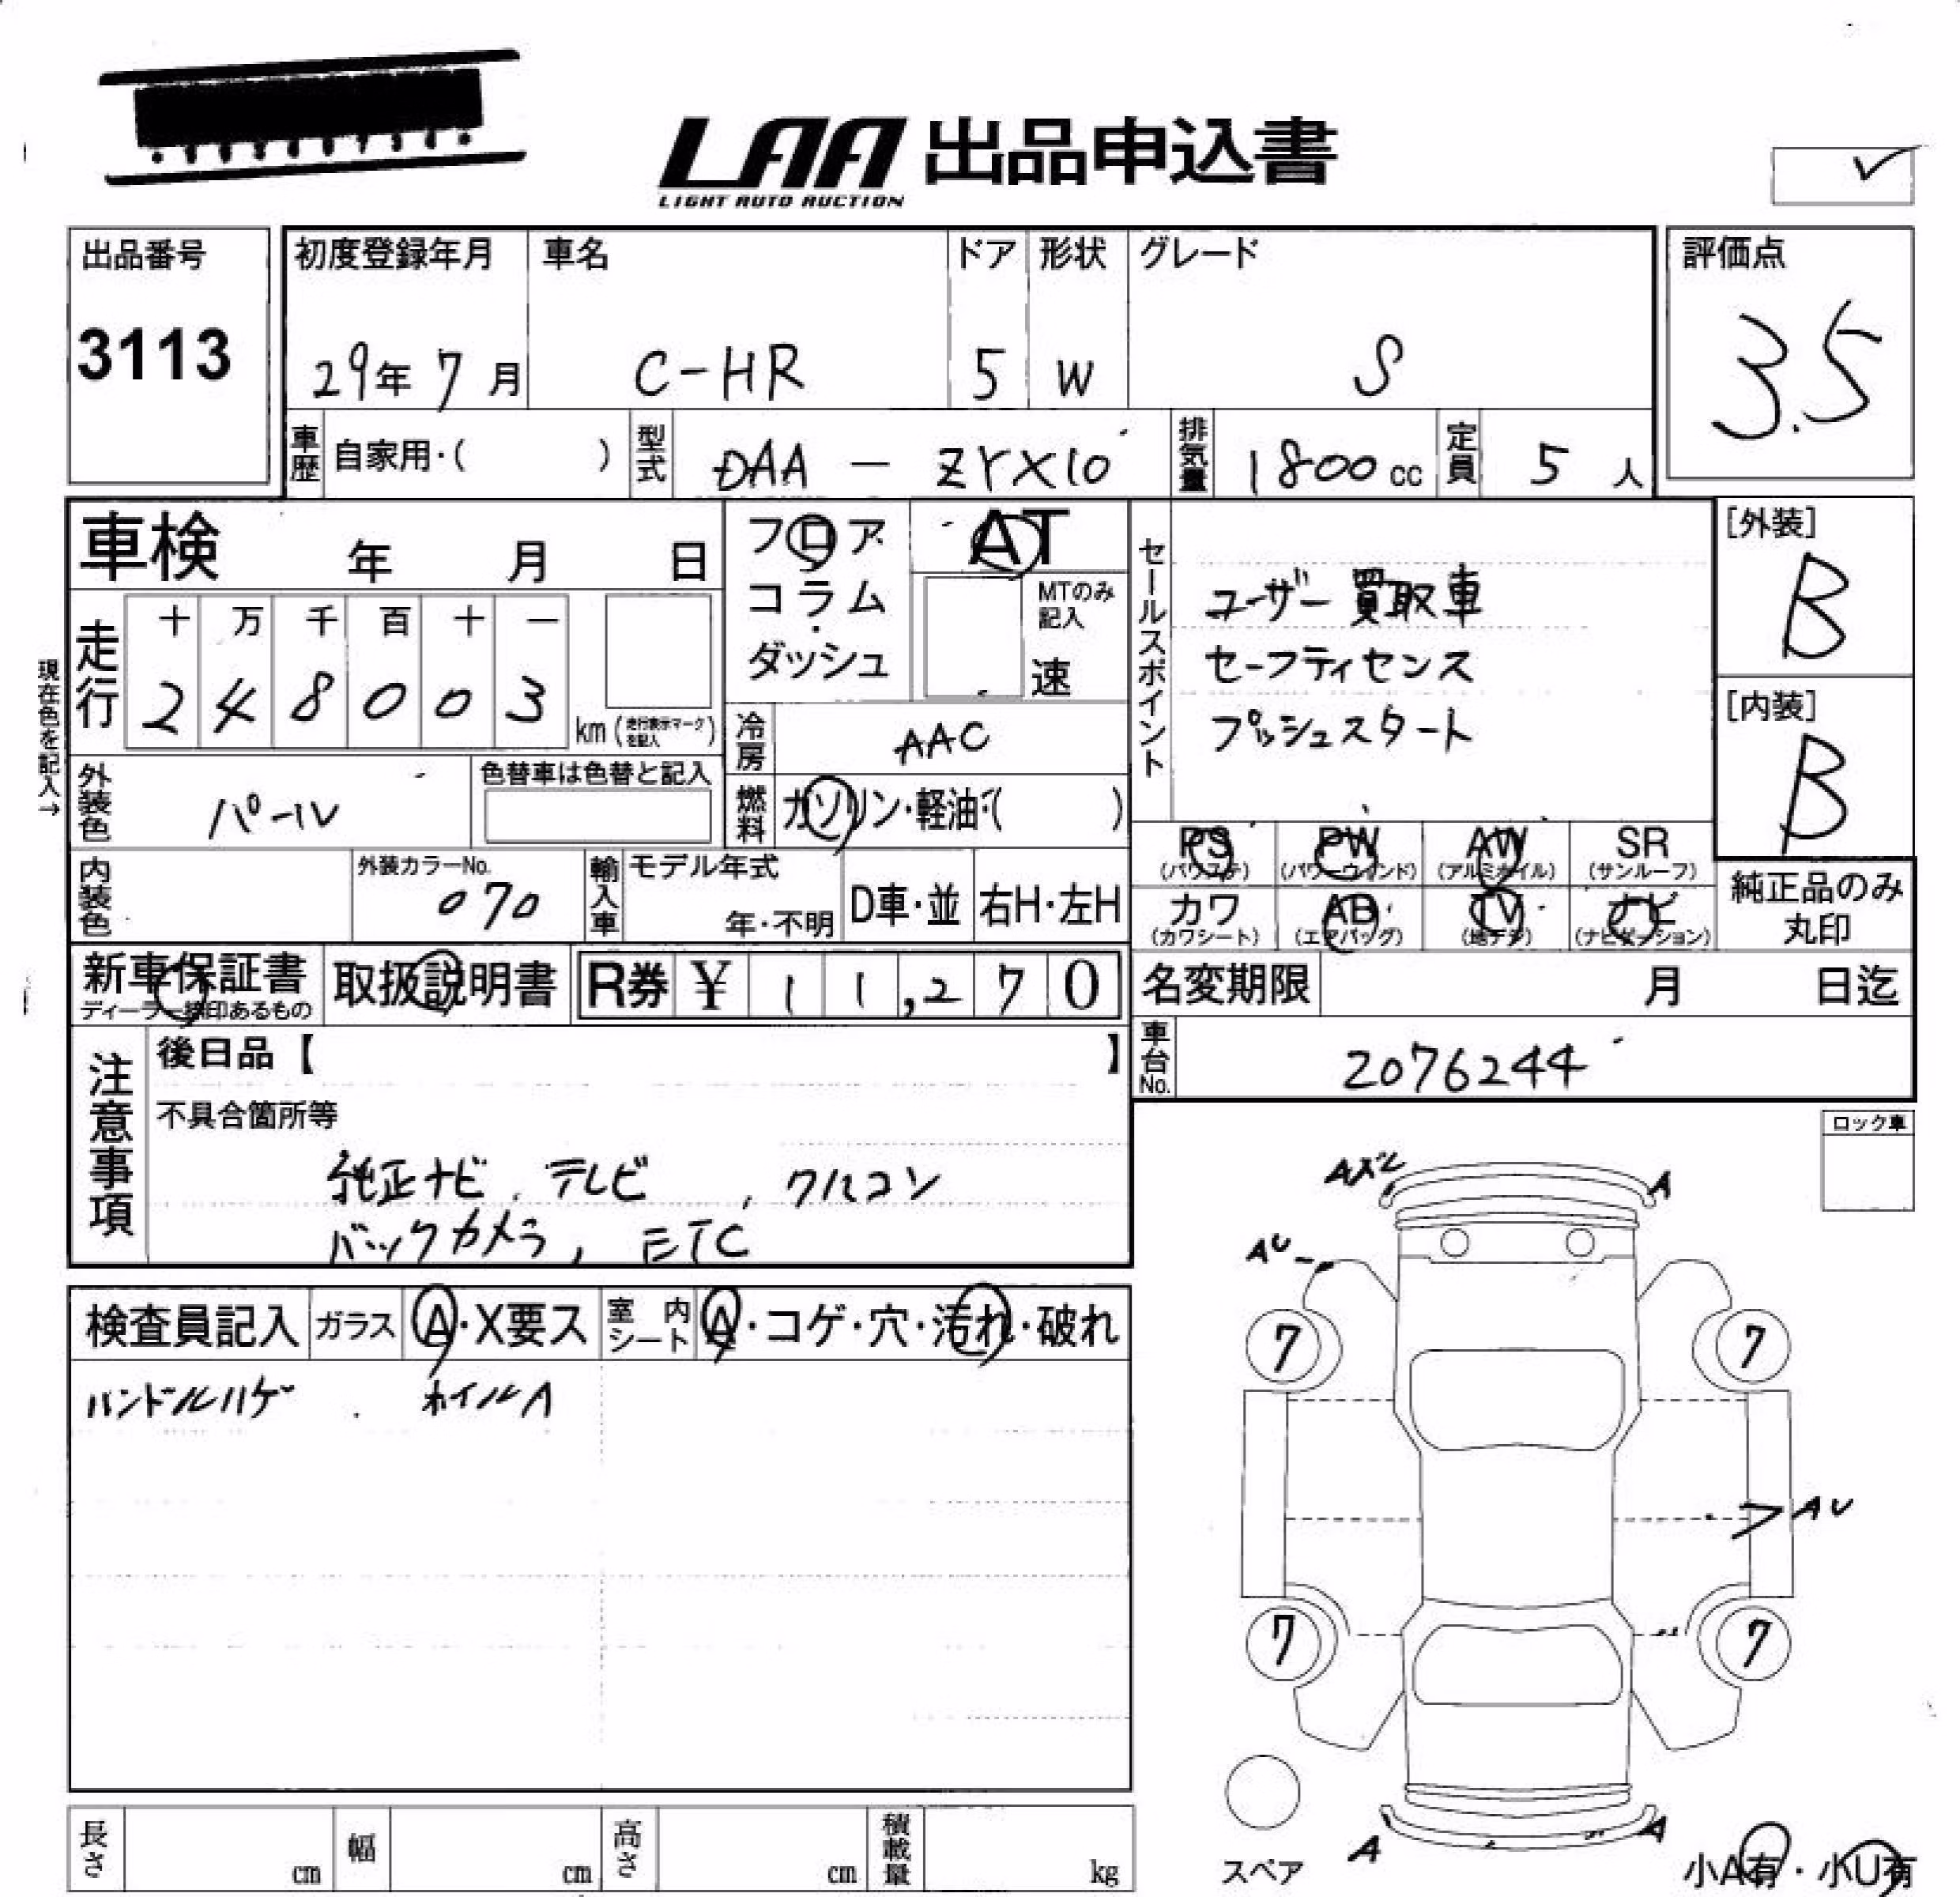 LAA 出品申込書
LIGHT AUTO AUCTION
出品番号
3113
初度登録年月 車名 ドア 形状 グレード
29年 7月 C-HR 5 W S
評価点
3.5
車歴 自家用・( ) 型式 DAA - ZYX10 排気量 1800cc 定員 5人
車検 年 月 日
フロア AT
コラム
ダッシュ
MTのみ記入
速
セールスポイント
ユーザー買取車
セーフティセンス
プッシュスタート
[外装]
B
[内装]
B
現在色を記入→
走行 十 万 千 百 十 一
2 4 8 0 0 3 km (走行表示マークを記入)
冷房 AAC
外装色 パール 色替車は色替と記入
燃料 ガソリン・軽油・( )
PS PW AW SR
(パワステ) (パワーウインド) (アルミホイル) (サンルーフ)
カワ AB TV ナビ
(カワシート) (エアバッグ) (地デジ) (ナビゲーション)
純正品のみ
丸印
内装色 外装カラーNo. 070 輸入車 モデル年式 年・不明 D車・並 右H・左H
新車保証書 取扱説明書 R券 ¥ 1 1,2 7 0
ディーラー捺印あるもの
名変期限 月 日迄
車台No. 2076244
注意事項
後日品【 】
不具合箇所等
純正ナビ、テレビ 、クルコン
バックカメラ、ETC
ロック車
検査員記入 ガラス A・X要ス 室内シート A・コゲ・穴・汚れ・破れ
ハンドルハゲ . ホイルA
A
AU
7 7
AU
7 7
A A
スペア
小A有・小U有
長さ cm 幅 cm 高さ cm 積載量 kg